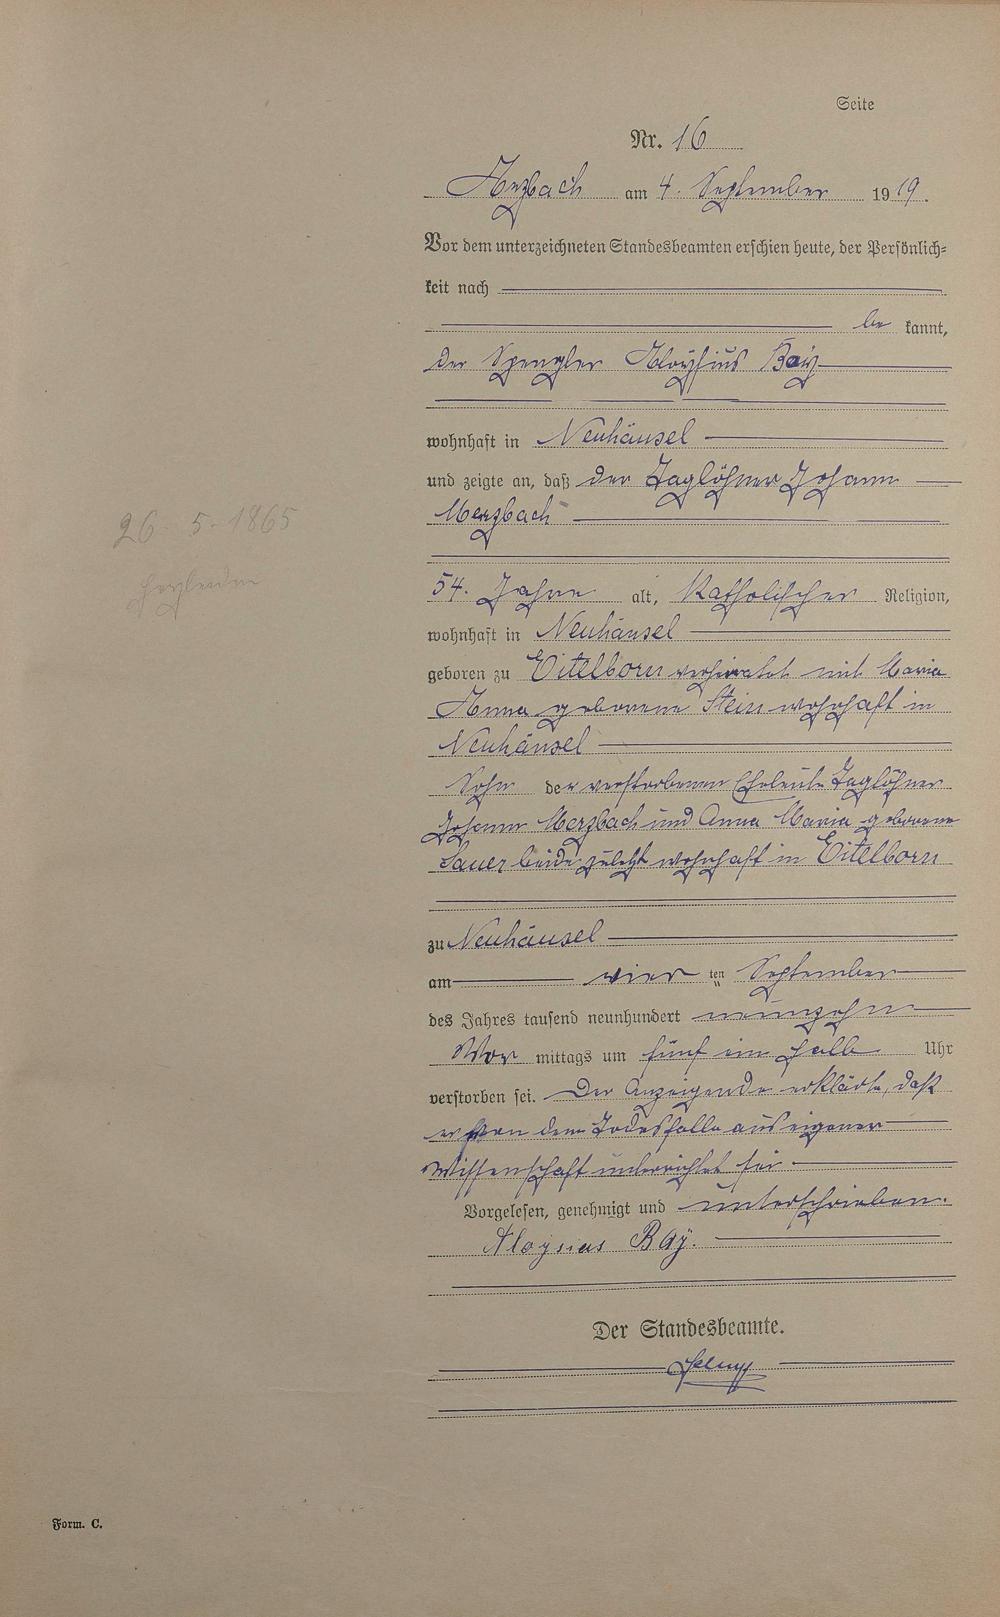 Seite
Nr. 16
Arzbach am 4. September 1919.
Vor dem unterzeichneten Standesbeamten erschien heute, der Persönlich-
keit nach
be kannt,
der Spengler Aloysius Baÿ
wohnhaft in Neuhäusel
und zeigte an, daß der Taglöhner Johann
Merzbach
26. 5. 1865
54. Jahre alt, Katholischer Religion,
wohnhaft in Neuhäusel
geboren zu Eitelborn verheiratet mit Maria
Anna geborene Stein wohnhaft in
Neuhäusel
Sohn der verstorbenen Eheleute Taglöhner
Johann Merzbach und Anna Maria geborene
Sauer beide zuletzt wohnhaft in Eitelborn
zu Neuhäusel
am vier ten September
des Jahres tausend neunhundert neunzehn
Vor mittags um fünf ein halb Uhr
verstorben sei. Der Anzeigende erklärte, daß
er von dem Todesfalle aus eigener
Wissenschaft unterrichtet sei
Vorgelesen, genehmigt und unterschrieben.
Aloysius Baÿ.
Der Standesbeamte.
Form. C.